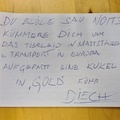 DU BLÖDE SAU NOITS
KÜMMERE DICH UM
DAS TIERLEID IN MASTSTÄLLEN
TRANSPORT IN EUROPA
AUFGEPASST EINE KUGEL
IN GOLD FÜHR
DIECH